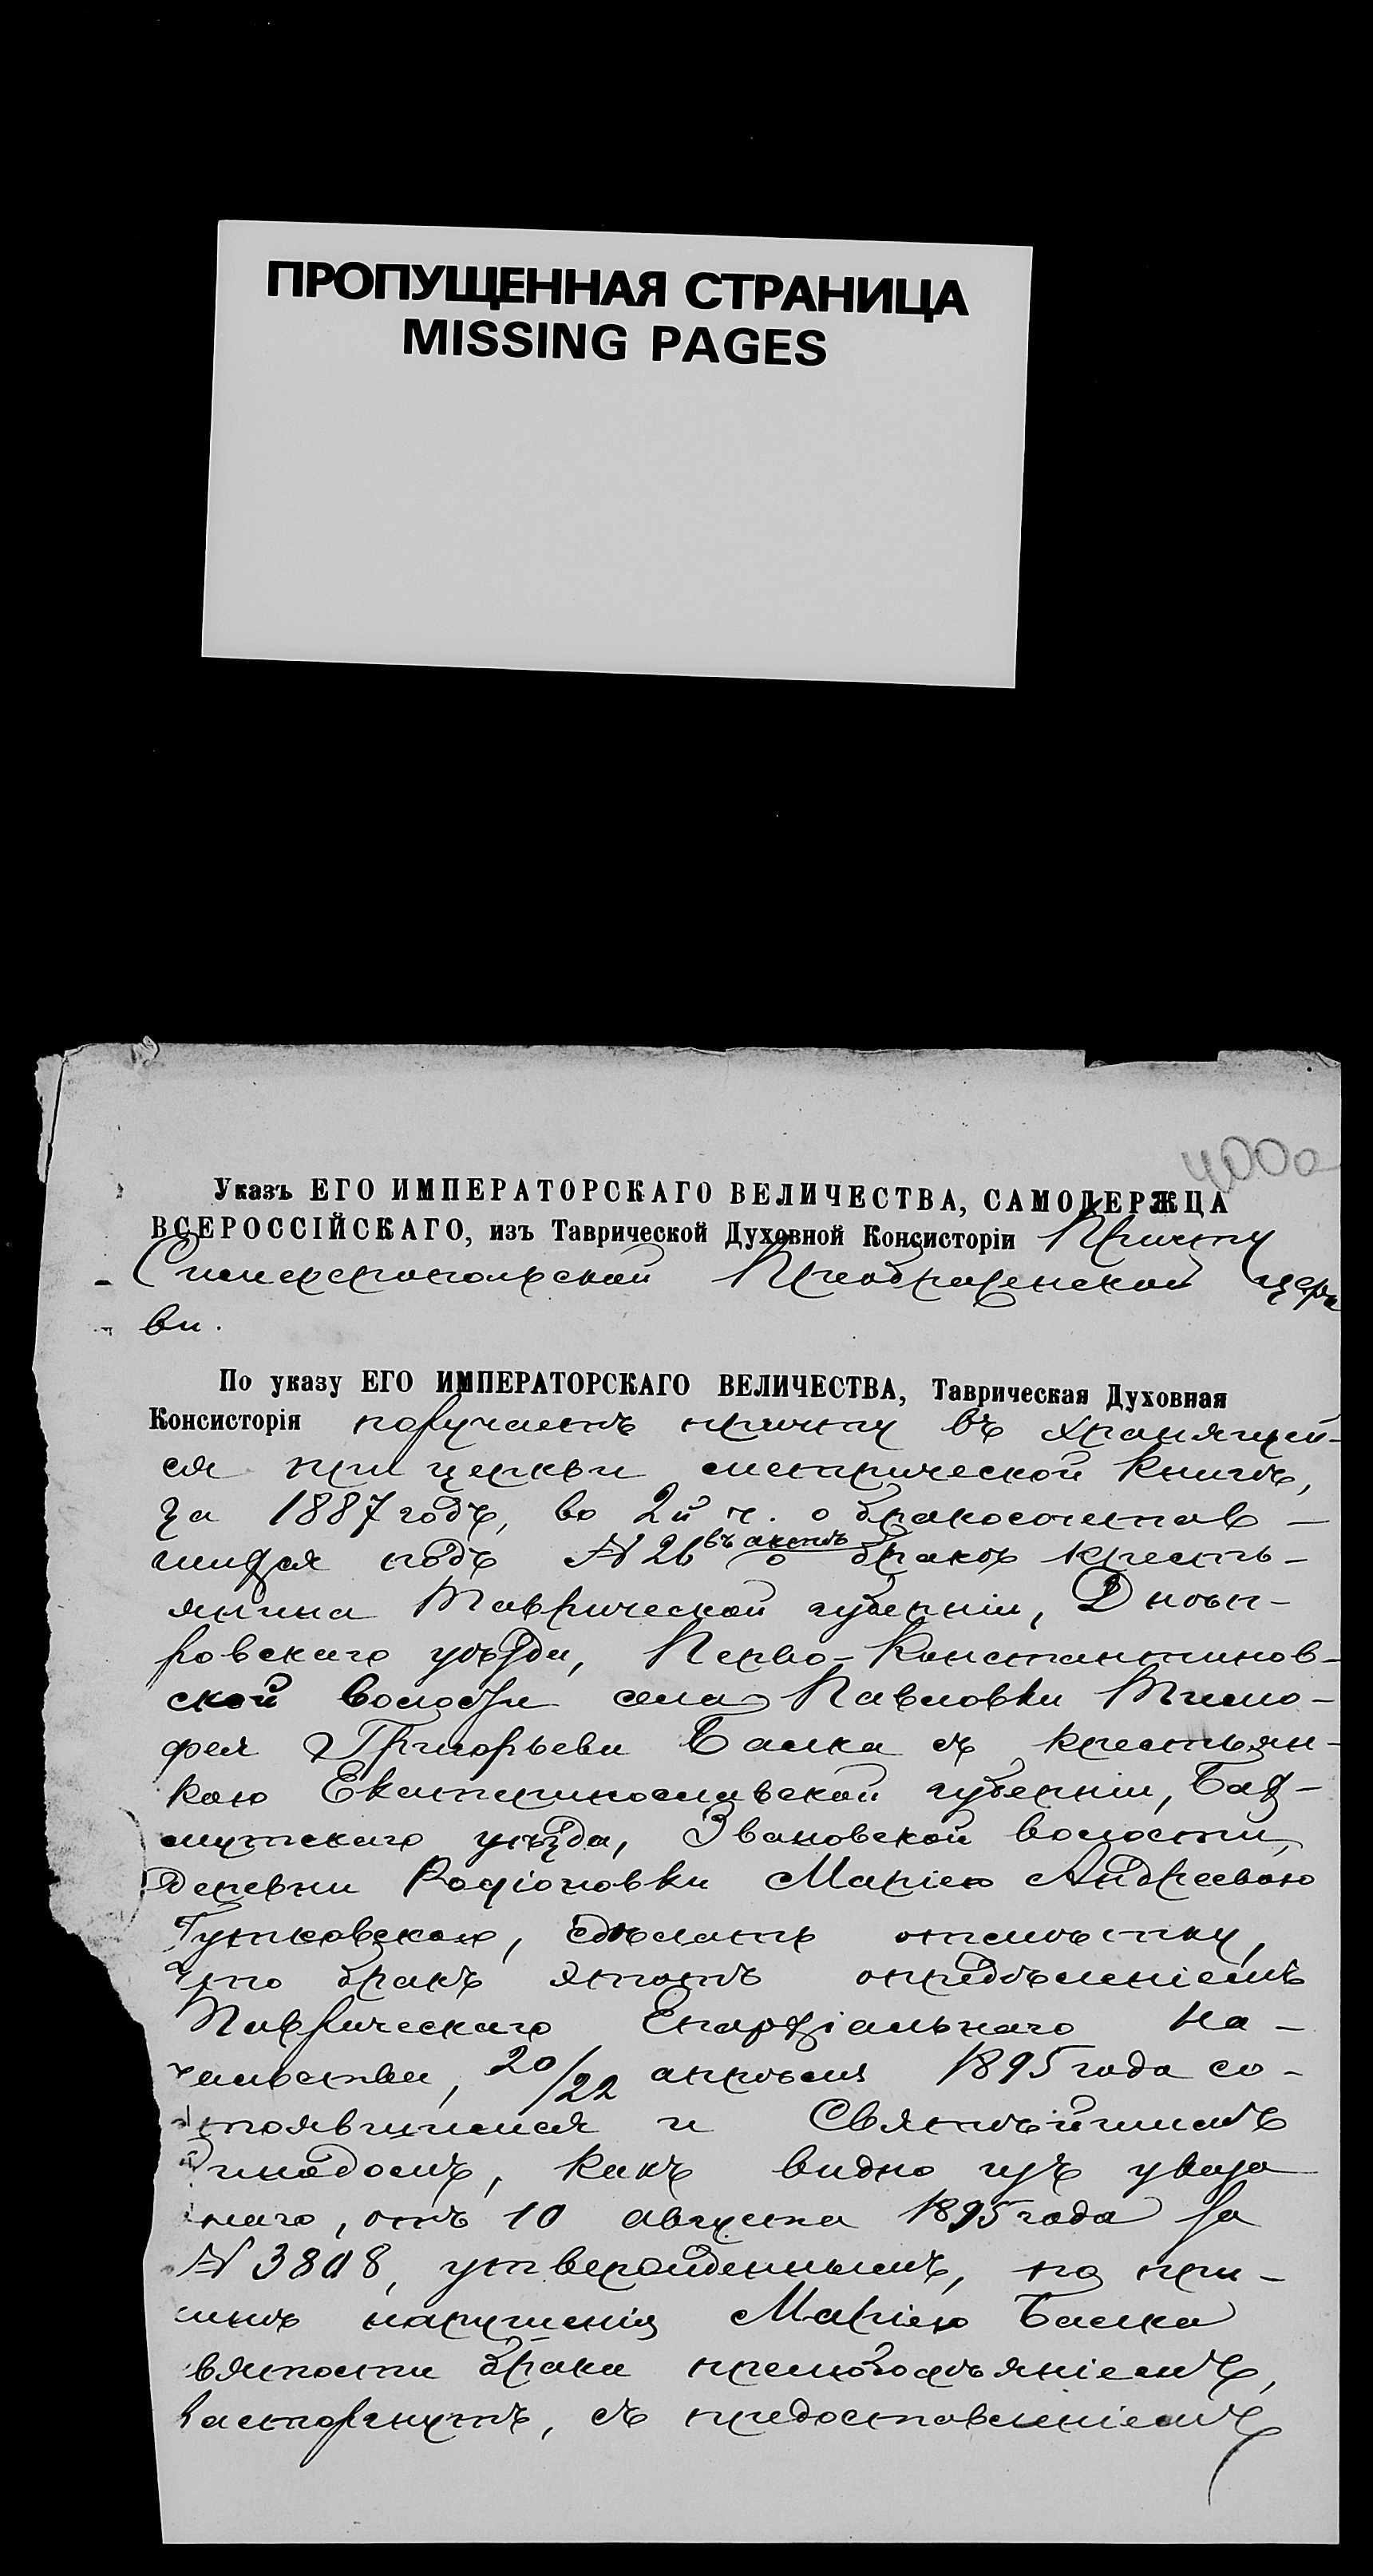 ПРОПУЩЕННАЯ СТРАНИЦА
MISSING PAGES
Указъ ЕГО ИМПЕРАТОРСКАГО ВЕЛИЧЕСТВА, САМОДЕРЖЦА
ВСЕРОССІЙСКАГО, изъ Таврической Духовной Консисторіи Причту
Симферопольской Преображенской церк
ви.
По указу ЕГО ИМПЕРАТОРСКАГО ВЕЛИЧЕСТВА, Таврическая Духовная
Консисторія поручаетъ причту въ хранящей-
ся при церкви метрической книгѣ,
за 1887 годъ, во 2й ч. о бракосочетав-
шихся подъ № 26 въ актѣ о бракѣ кресть-
янина Таврической губерніи, Днѣп-
ровскаго уѣзда, Перво-Константинов-
ской волости села Павловки Тимо-
фея Григорьева Балка съ крестьян-
кою Екатеринославской губерніи, Бах-
мутскаго уѣзда, Звановской волости,
деревни Родіоновки Маріею Андреевою
Гутковскою, сдѣлать отмѣтку,
что бракъ этотъ опредѣленіемъ
Таврическаго Епархіальнаго На-
чальства, 20/22 апрѣля 1895 года со-
стоявшимся и Святѣйшимъ
Синодомъ, какъ видно изъ указа
онаго, отъ 10 августа 1895 года за
№ 3808, утвержденнымъ, по при-
чинѣ нарушенія Маріею Балка
вятости брака прелюбодѣяніемъ,
расторгнутъ, съ предоставленіемъ